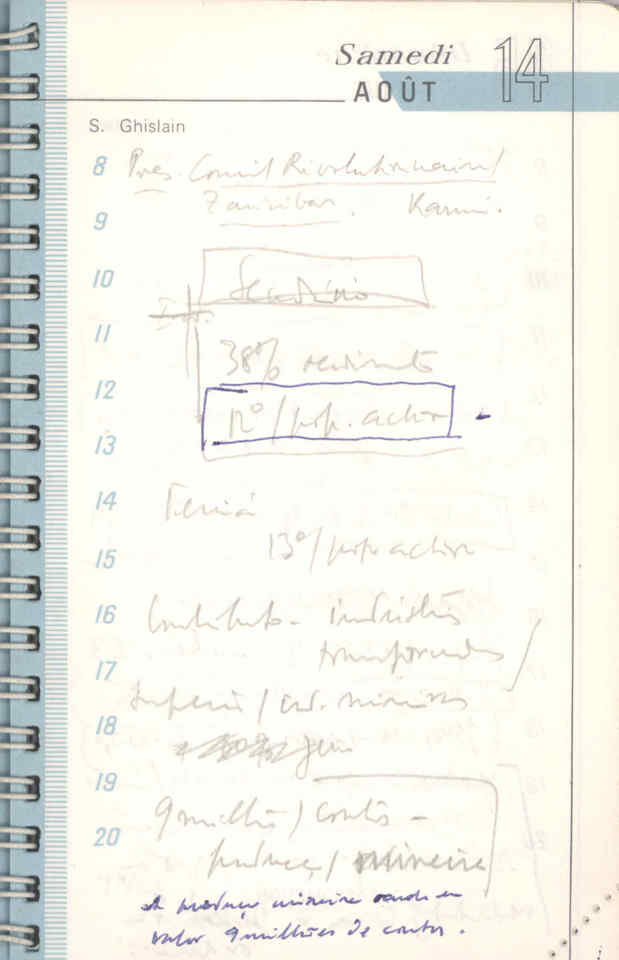 Samedi 14
AOÛT
S. Ghislain
8 Pres. Comit Rivolutionnaire /
9 Zanzibar. Karume.
10 Secundário
11 38% rendimento
12 12% / pop. activa
13
14 Terciá
15 13% / pop. activa
16 Contributo - indústrias
17 transformadoras
superior / ind. mineiras
18
19 9 milhões / contos -
20 produç / mineira
A produç mineira ronda em
valor 9 milhões de contos.